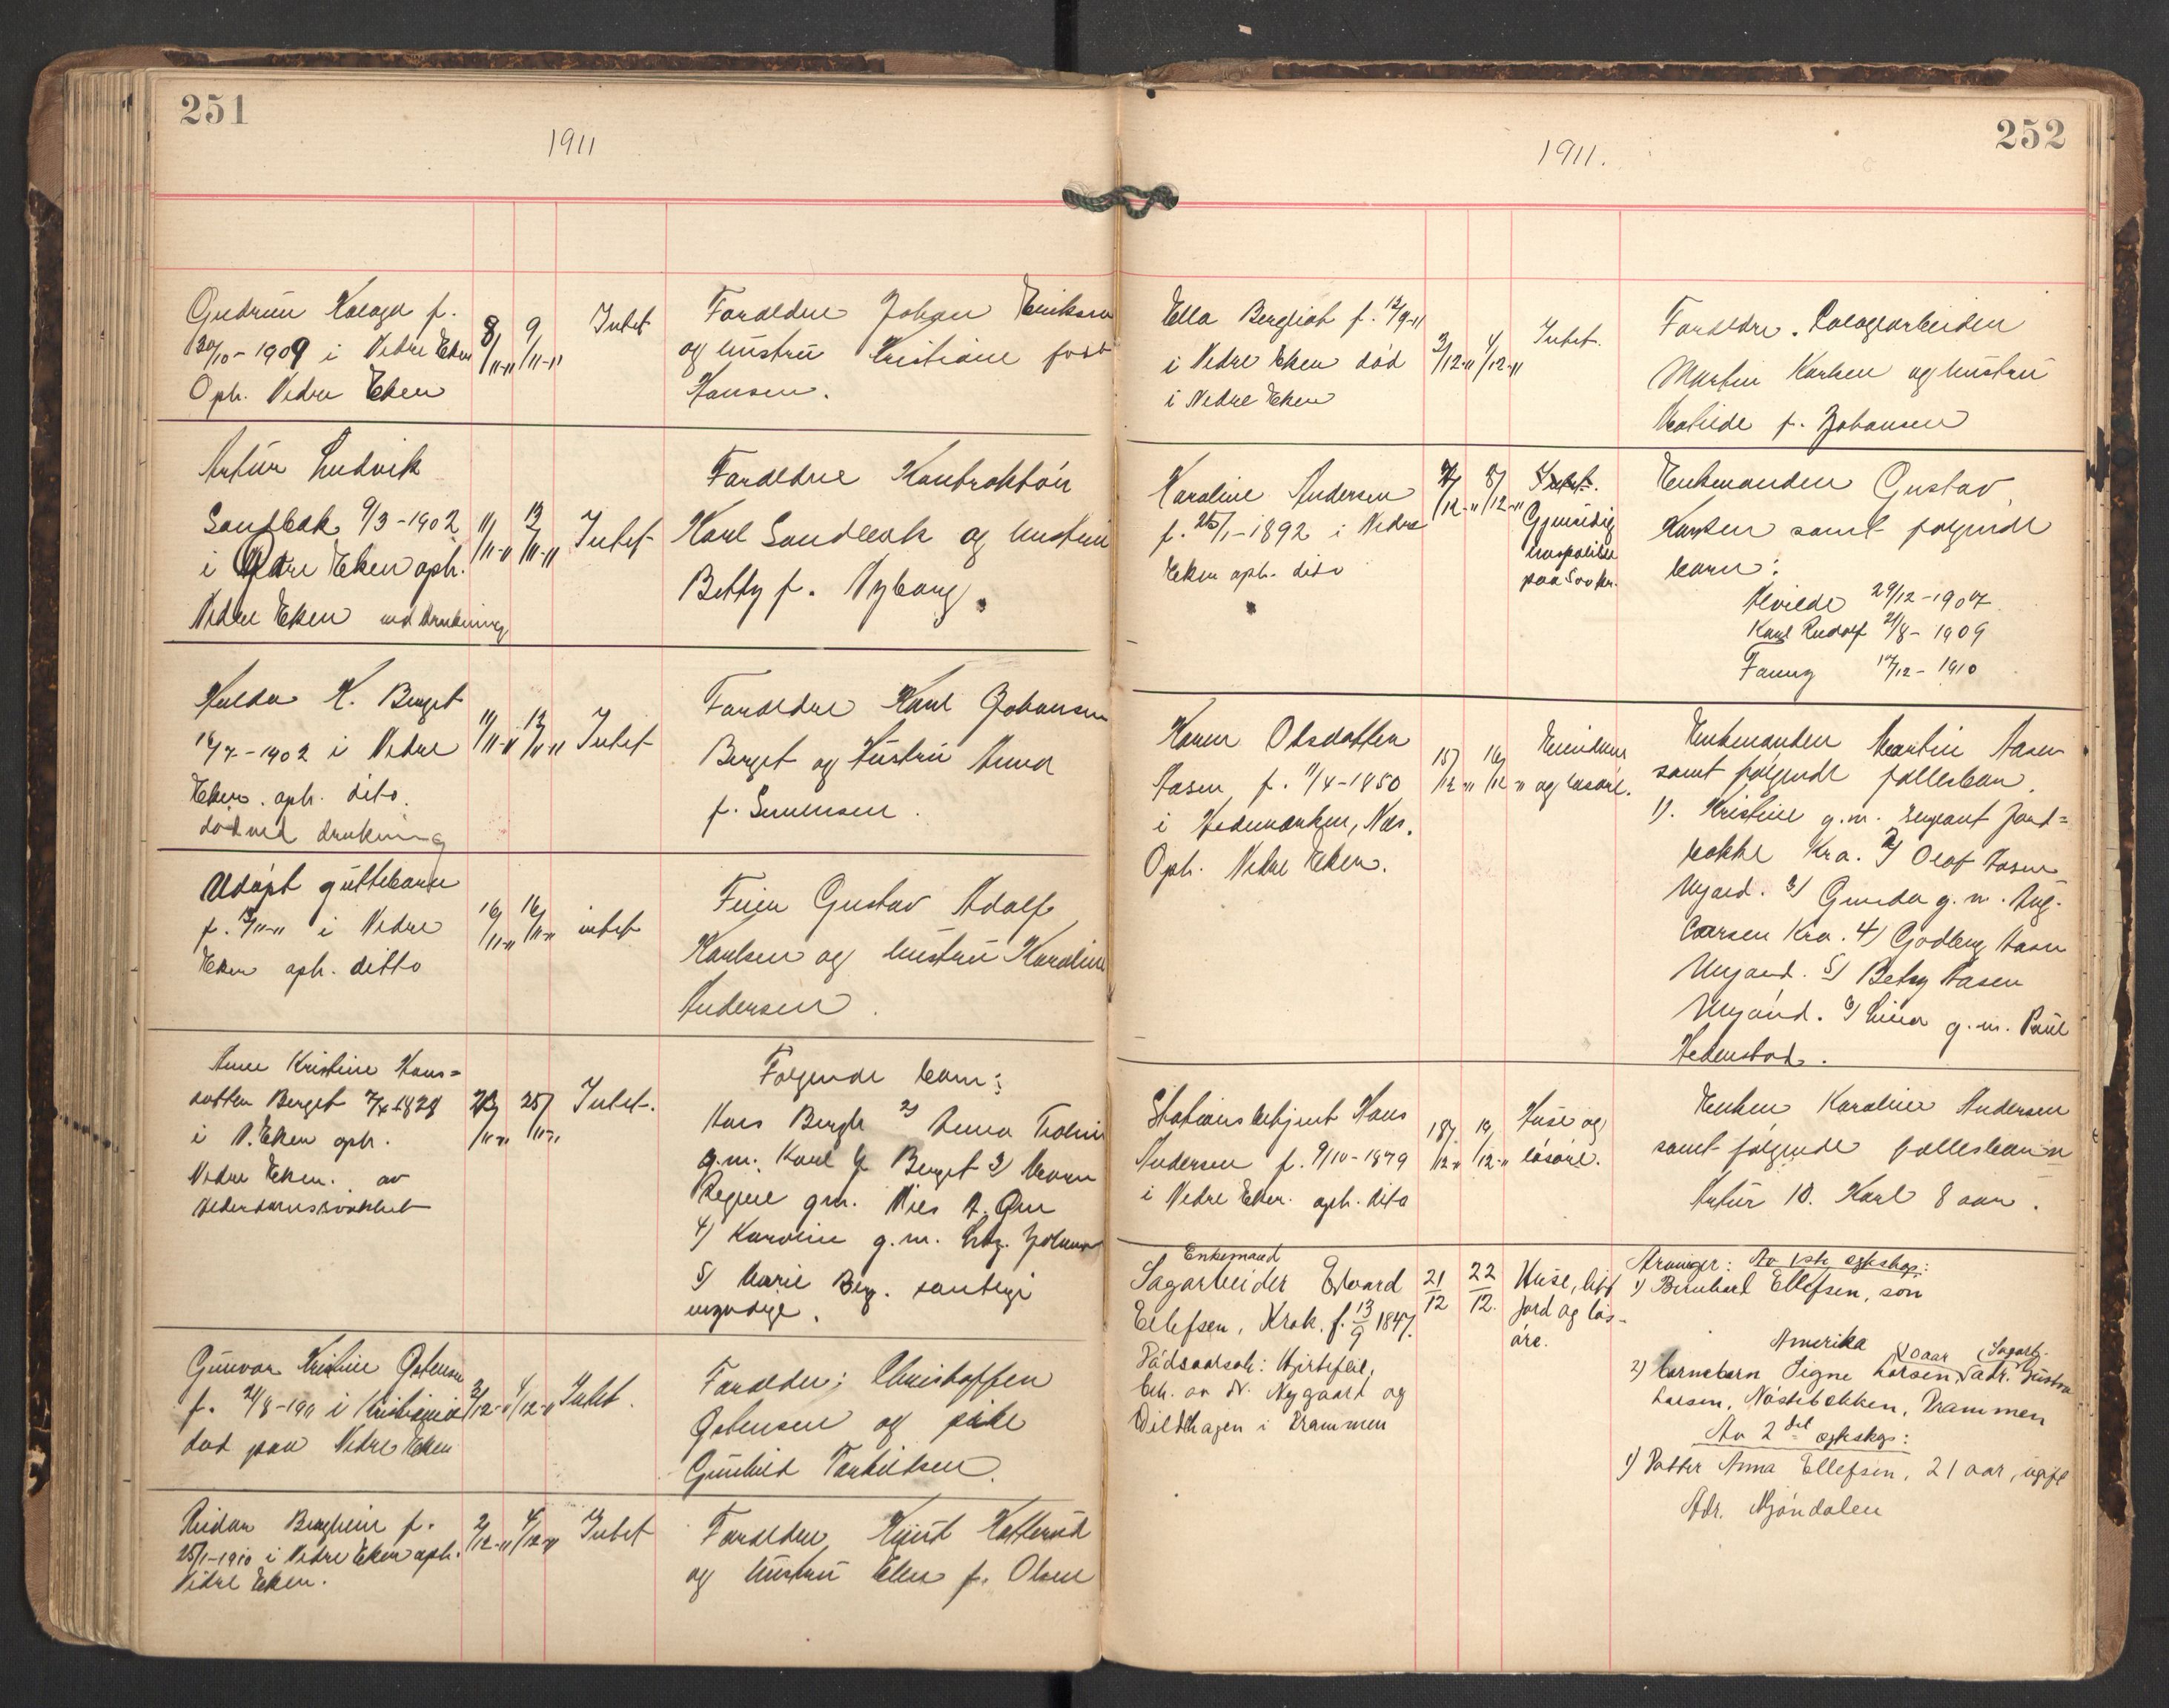 251
1911
Gudrun f.
30/10-1909 i Nedre Eker
Oph. Nedre Eker
8/11-11
9/11-11
Intet
Foreldre Johan Eriksen
og hustru Kristiane født
Hansen.
Artur Ludvik
Sandbak 9/3-1902
i Nedre Eker oph.
Nedre Eker ved drukning
11/11-11
13/11-11
Intet
Foreldre Kontraktør
Karl Sandbak og hustru
Betty f. Nyborg.
Hulda K. Berget
16/7-1902 i Nedre
Eker. oph. dito.
død ved drukning
11/11-11
13/11-11
Intet
Foreldre Karl Johansen
Berget og Hustru Anna
f. Simensen.
Udøpt guttebarn
f. 13/11-11 i Nedre
Eker oph. ditto
16/11-11
16/11-11
intet
Feier Gustav Adolf
Karlsen og hustru Karoline
Andersen.
Anne Kristine Hans=
datter Berget 1828
i N. Eker oph.
Nedre Eker. av
alderdomssvakhet
23/11-11
25/11-11
Intet.
Følgende barn:
Hans Bergh 2) Anna
g.m. Karl J. Berget 3) Maren
Regine gm. Nils A.
4) Karoline g.m.
5) Marie Berg. samtlige
myndige.
Gunvor Kristine Gotensen
f. 24/8-1911 i Kristiania
død paa Nedre Eker
3/12-11
4/12-11
Intet.
Foreldre: Christoffer
Gotensen og pike
Gunhild Torkildsen.
Reidar Bergheim f.
25/1-1910 i Nedre Eker oph.
Nedre Eker.
2/12-11
4/12-11
Intet
Foreldre, Knut Hotterud
og hustru Ellen f. Olsen
252
1911.
Ella Bergliot f. 12/9-11
i Nedre Eker død
i Nedre Eker
3/12-11
4/12-11
Intet.
Foreldre. Lolagearbeider
Marten Karlsen og hustru
Matilde f. Johansen
Karoline Andersen
f. 25/1-1892 i Nedre
Eker oph. dito
7/12-11
8/12-11
Intet.
Gjensidig
livspolise
paa 500 kr.
Enkemanden Gustav
Karlsen samt følgende
barn:
Alvilde 29/12-1907
Karl Rudolf 21/8-1909
Fanny 17/12-1910
Karen Olsdatter
Aasen f. 11/4-1850
i Hedemarken, Nes.
Oph. Nedre Eker.
15/12-11
16/12-11
Eiendom
og løsøre.
Enkemanden Martin Aasen
samt følgende fellesbarn.
1). Kristine g.m. sergeant Jord=
bakke Kra. 2) Olaf Aasen
Mjønd. 3) Gunda g.m. Aug.
Larsen Kra. 4) Godberg Aasen
Mjønd. 5) Betsy Aasen
Mjønd. 6) Lina g.m. Paul
Hedenstad.
Stationsbetjent Hans
Andersen f. 9/10-1879
i Nedre Eker. oph. dito
18/12-11
19/12-11
Huse og
løsøre.
Enken Karoline Andersen
samt følgende fellesbarn
Artur 10. Karl 8 aar.
Enkemand
Sagarbeider Edvard
Ellefsen, Krok. f. 13/9 1847.
Dødsaarsak: Hjertefeil,
beh. av dr. Nygaard og
Dildhagen i Drammen
21/12
22/12.
Huse, litt
jord og løs-
øre.
Arvinger: Av 1ste egtskap:
1) Bernhard Ellefsen, søn
Amerika
2) barnebarn Signe Larsen, 10 aar (Sagarb. adr. Gustav
Larsen, Nøstebekken, Drammen
Av 2det egtskap:
1) Datter Anna Ellefsen, 21 aar, ugift
Adr. Mjøndalen